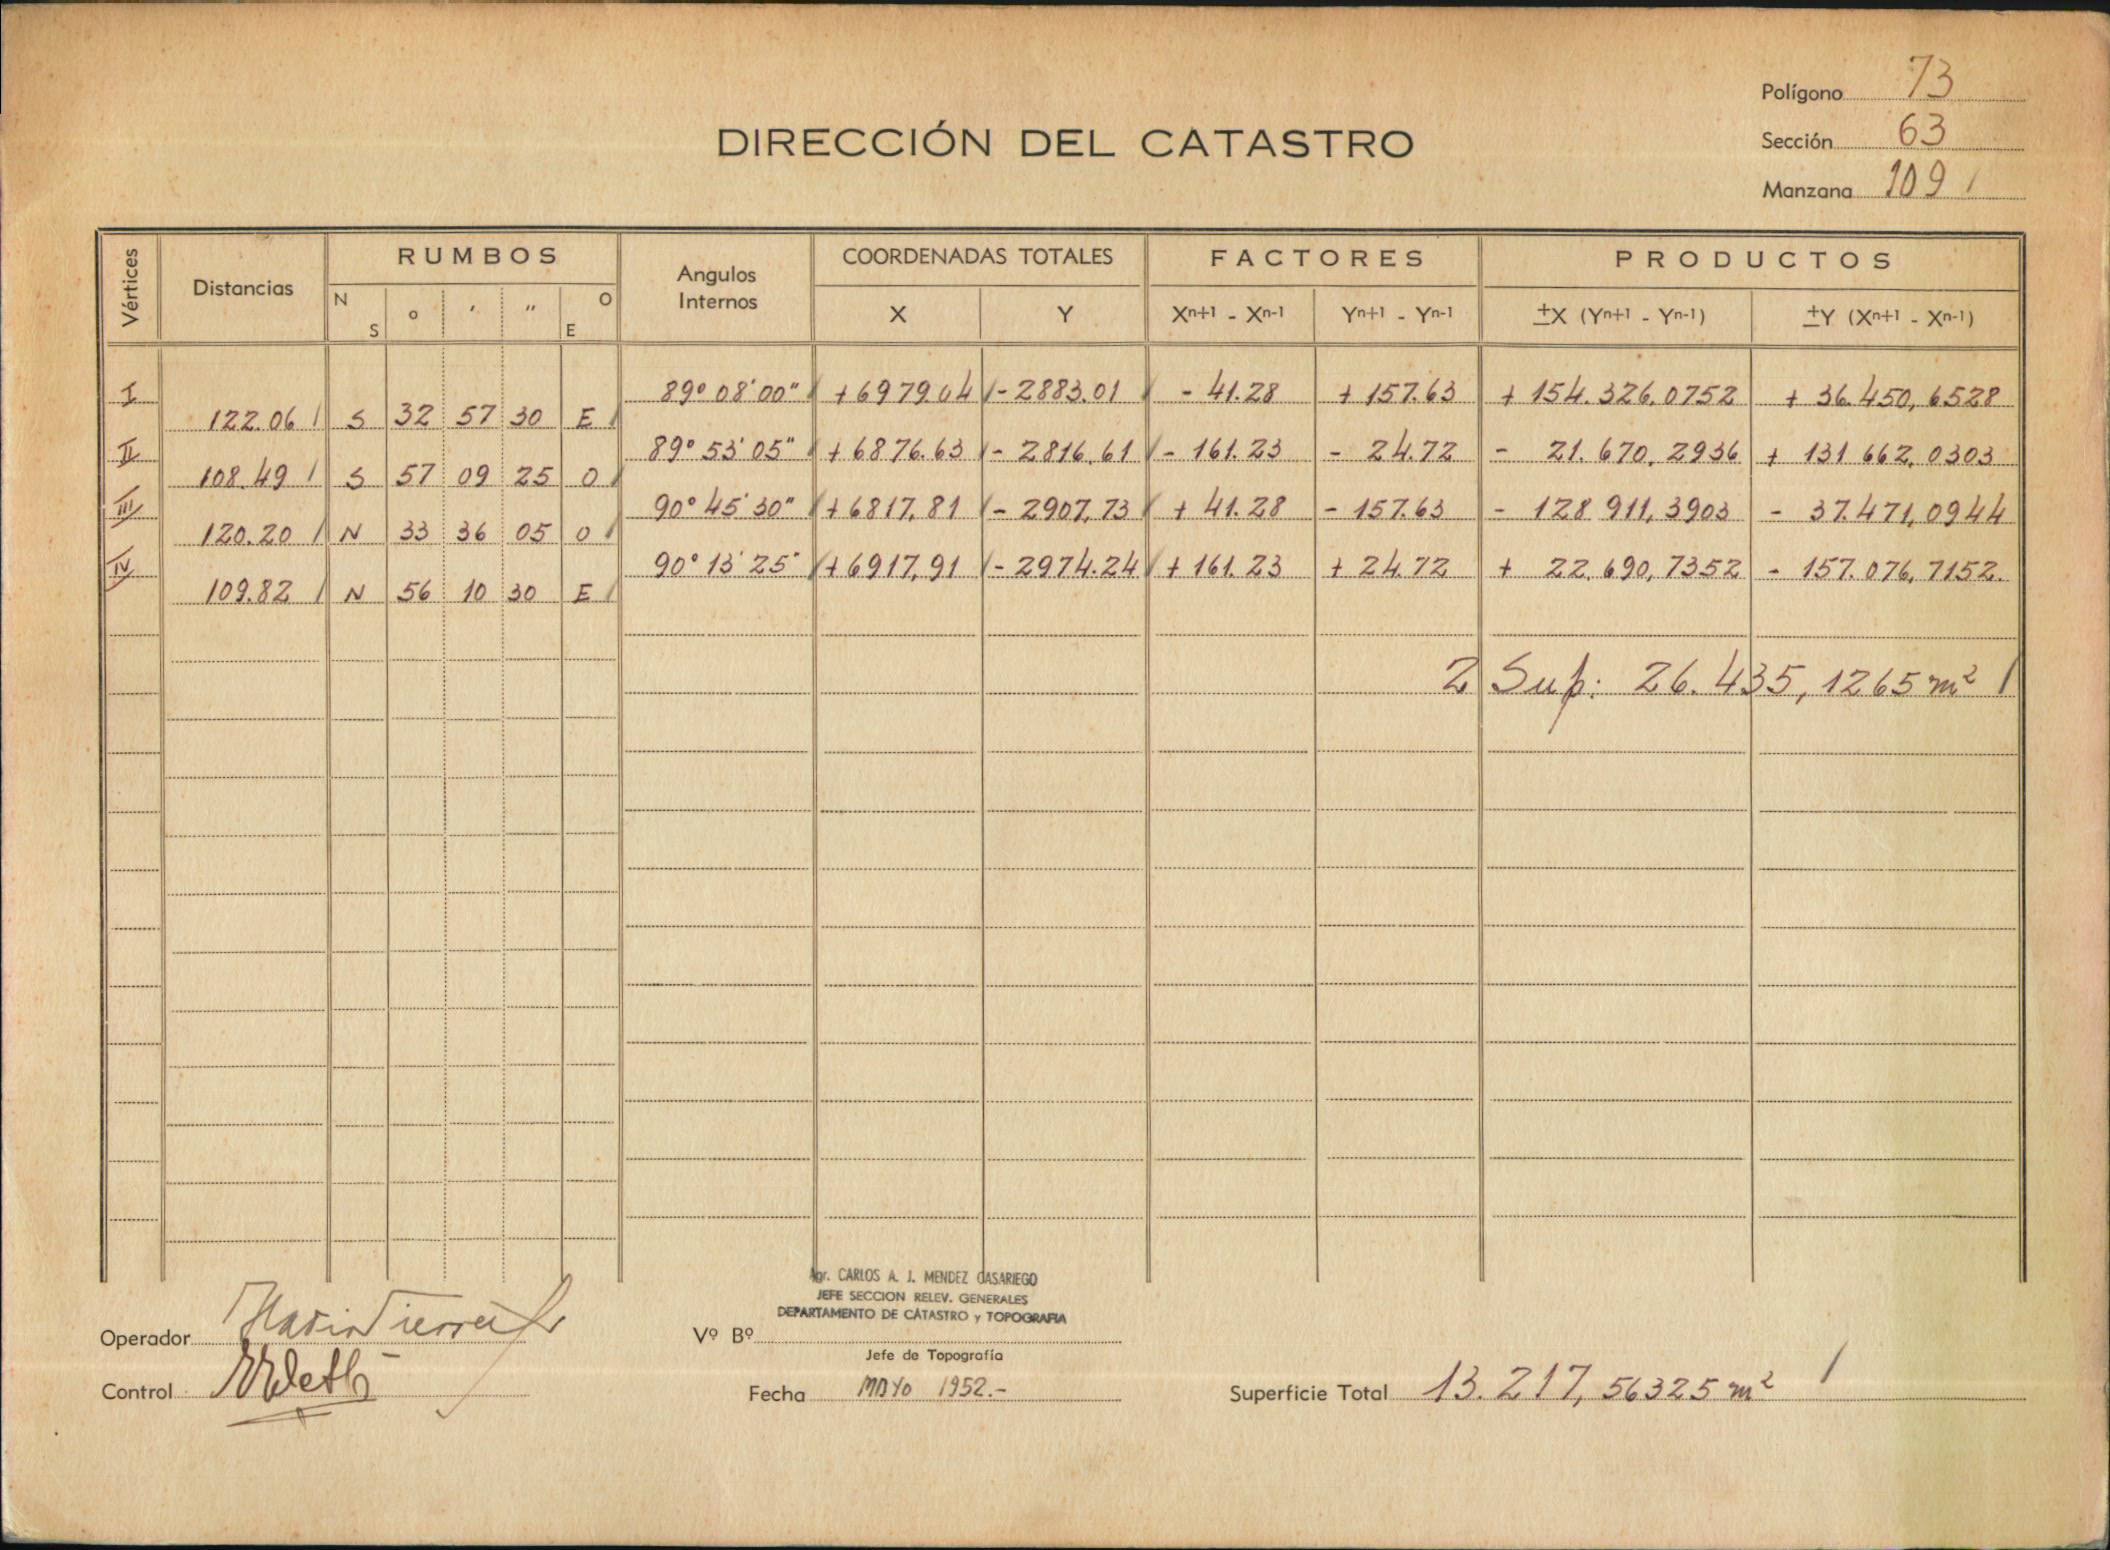 Polígono 73
DIRECCIÓN DEL CATASTRO
Sección 63
Manzana 109
Vértices Distancias RUMBOS Angulos Internos COORDENADAS TOTALES FACTORES PRODUCTOS
N S ° ' " O E X Y Xn+1 - Xn-1 Yn+1 - Yn-1 ±X (Yn+1 - Yn-1) ±Y (Xn+1 - Xn-1)
I 89° 08' 00" +6979.04 -2883.01 - 41.28 + 157.63 + 154.326,0752 + 36.450,6528
122.06 S 32 57 30 E
II 89° 53' 05" +6876.63 - 2816.61 - 161.23 - 24.72 - 21.670,2936 + 131 662,0303
108.49 S 57 09 25 O
III 90° 45' 30" +6817,81 - 2907,73 + 41.28 - 157.63 - 128 911,3903 - 37.471,0944
120.20 N 33 36 05 O
IV 90° 13' 25" +6917,91 - 2974.24 + 161.23 + 24.72 + 22.690,7352 - 157.076,7152.
109.82 N 56 10 30 E
2 Sup: 26.435,1265 m²
Agr. CARLOS A. J. MENDEZ CASARIEGO
JEFE SECCION RELEV. GENERALES
DEPARTAMENTO DE CATASTRO y TOPOGRAFIA
Operador
Vº Bº
Jefe de Topografía
Control
Fecha MAYO 1952.-
Superficie Total 13.217,56325 m²